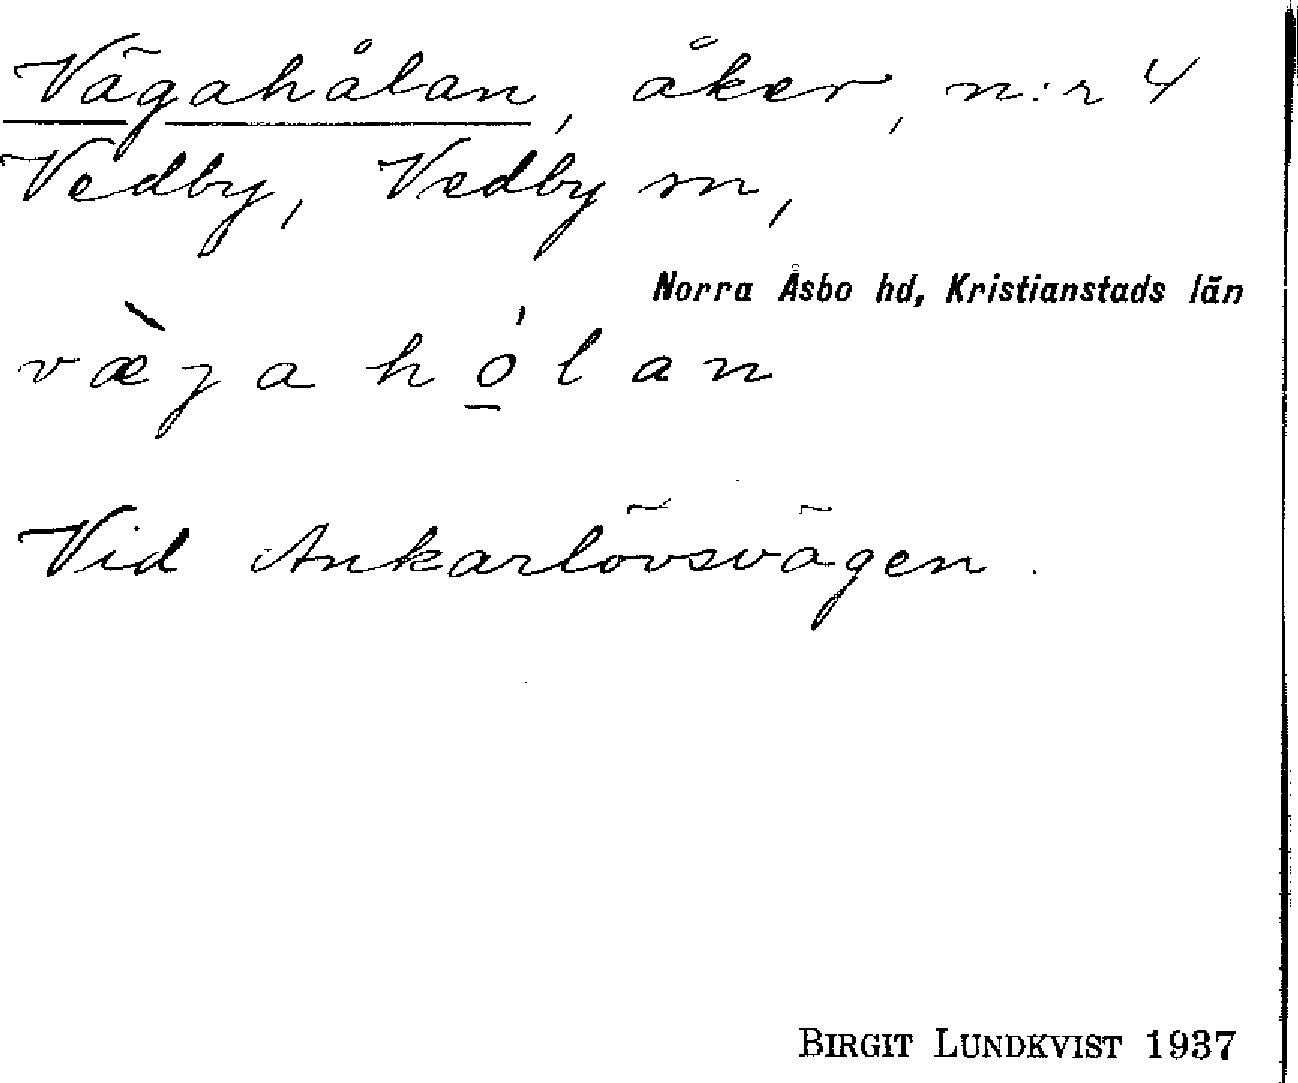 Vägahålan, åker, n:r 4
Vedby, Vedby sn,
Norra Åsbo hd, Kristianstads län
væ̀ja hó̱lan
Vid Ankarlövsvägen.
BIRGIT LUNDKVIST 1937